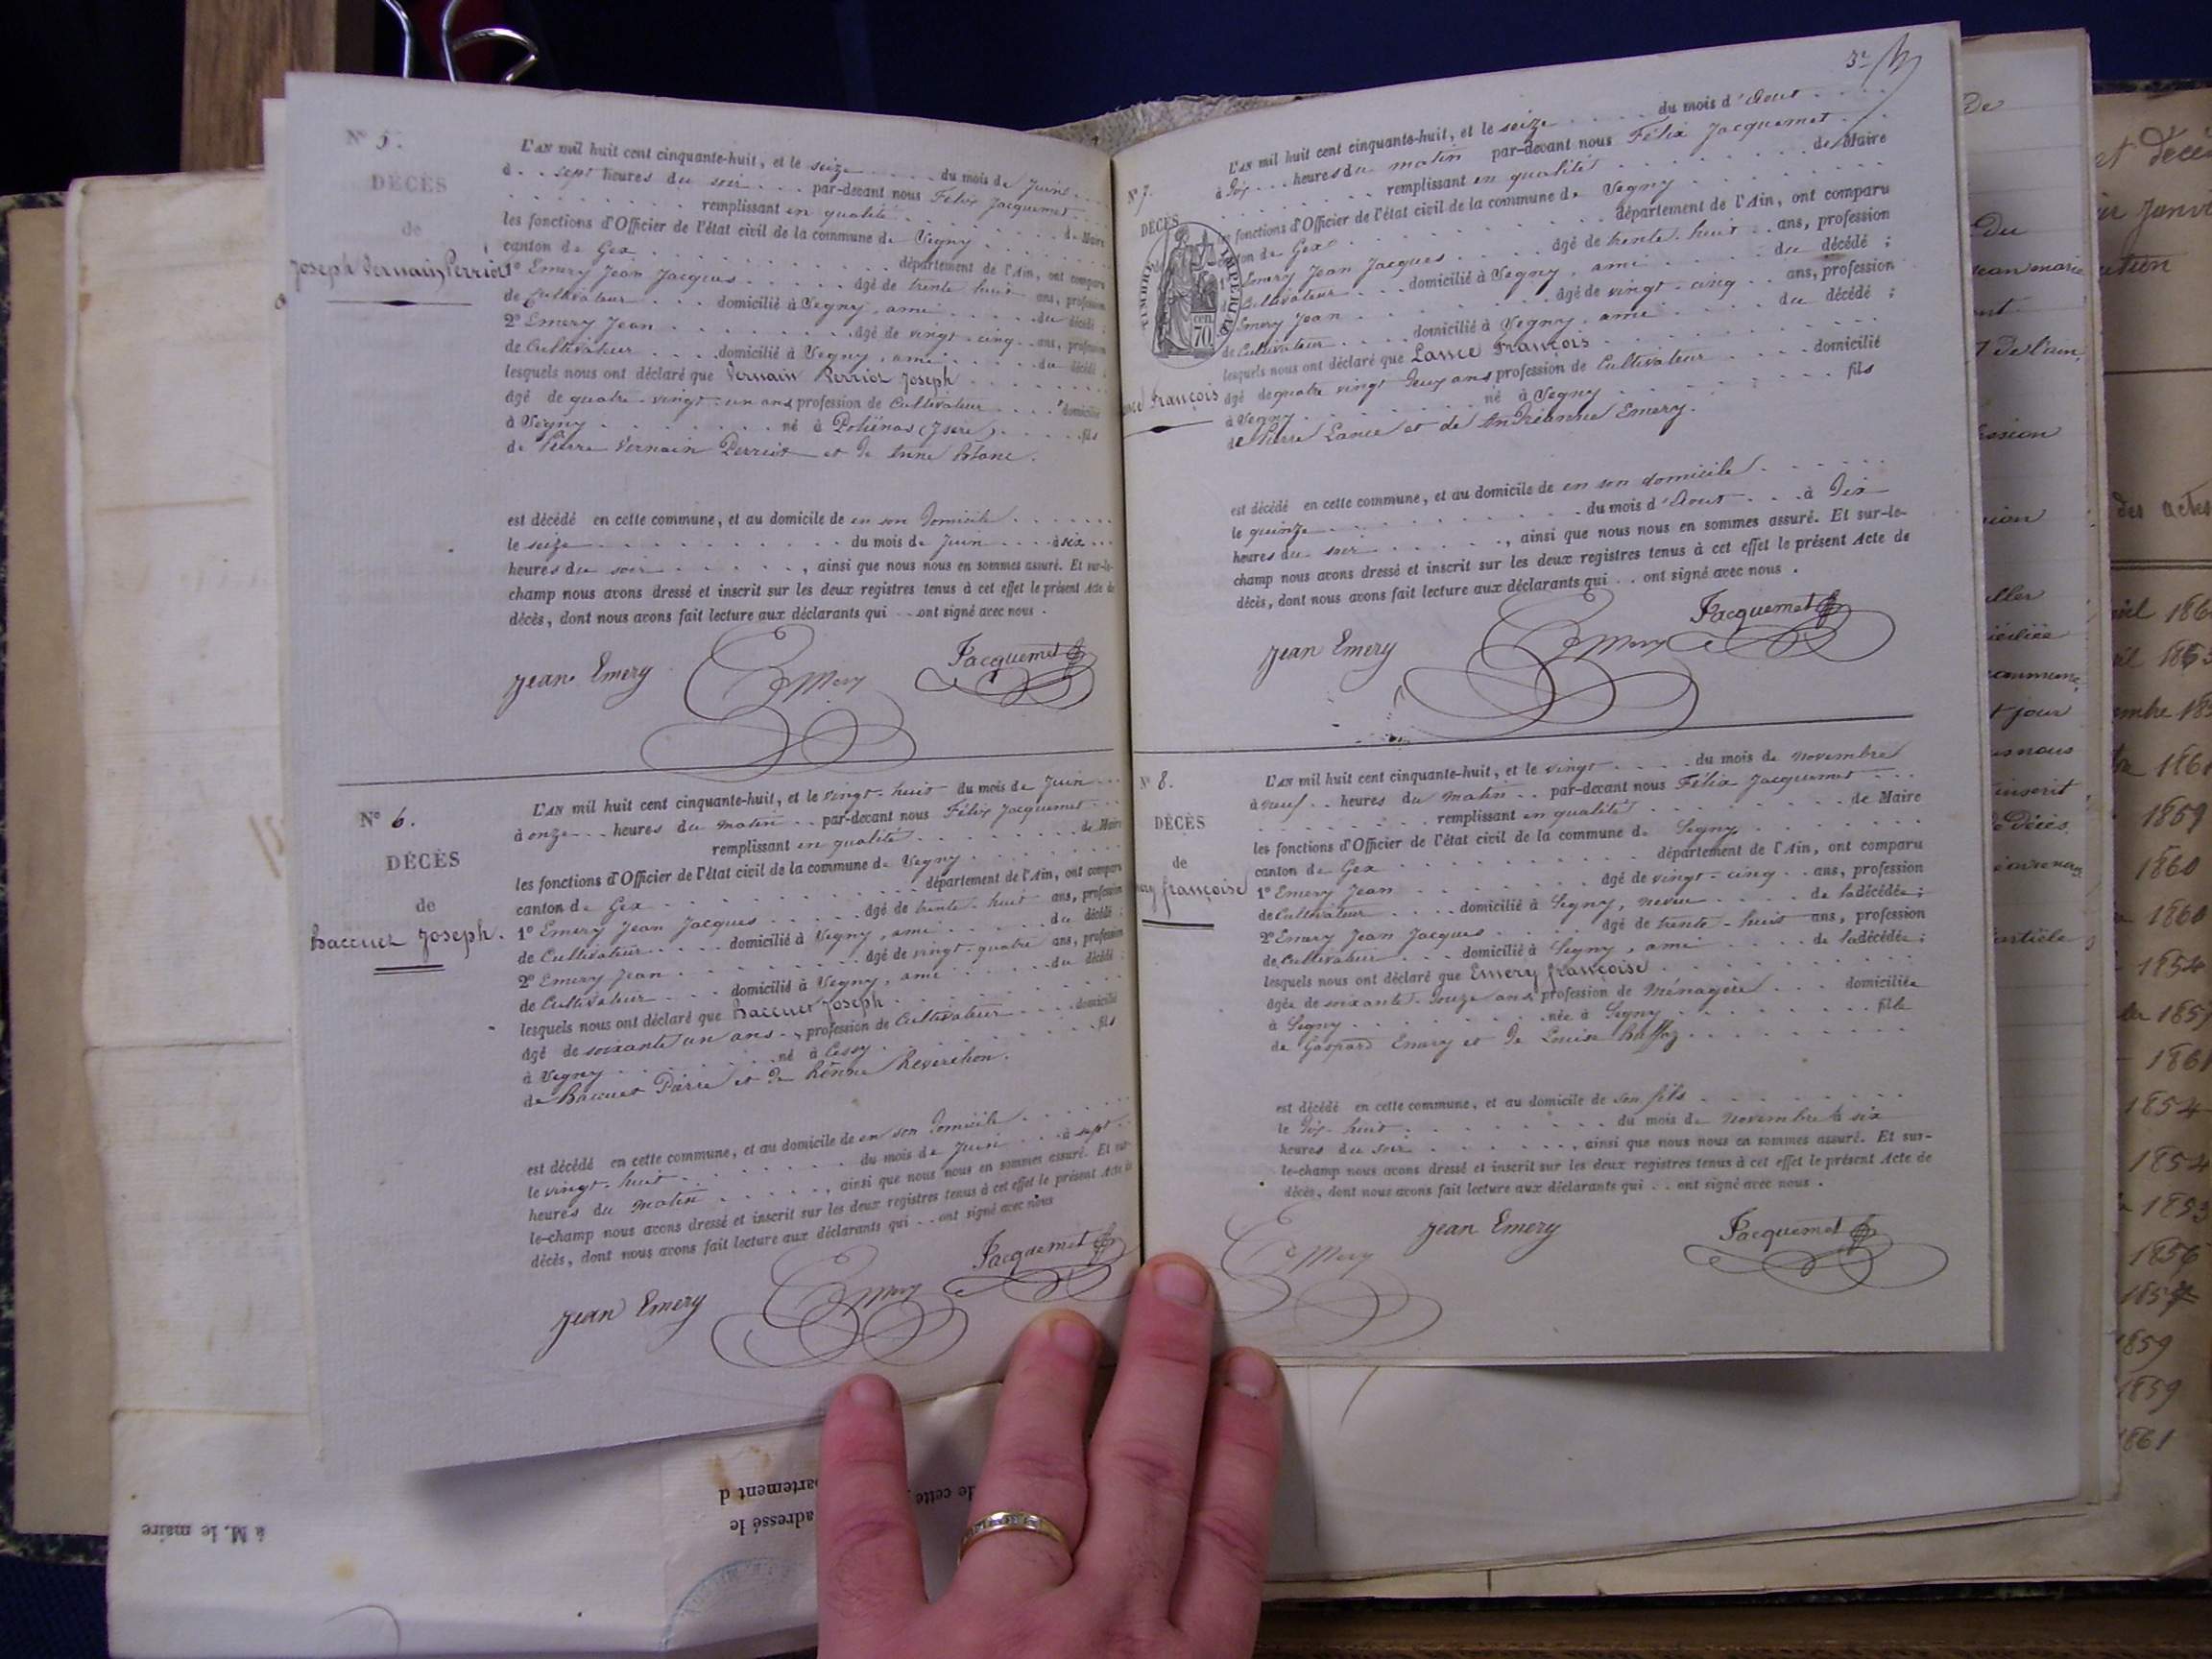 N° 5.
DÉCÈS
de
Joseph Vernain Perriot
L'AN mil huit cent cinquante-huit, et le seize du mois de Juin
à sept heures du soir par-devant nous Félix Jacquemet
remplissant en qualité de Maire
les fonctions d'Officier de l'état civil de la commune de Segny
canton de Gex département de l'Ain, ont comparu
1° Emery Jean Jacques âgé de trente huit ans, profession
de Cultivateur domicilié à Segny, ami du décédé ;
2° Emery Jean âgé de vingt-cinq ans, profession
de Cultivateur domicilié à Segny, ami du décédé ;
lesquels nous ont déclaré que Vernain Perriot Joseph
âgé de quatre-vingt-un ans profession de Cultivateur domicilié
à Segny né à Poliénas (Isère) fils
de Pierre Vernain Perriot et de Anne
est décédé en cette commune, et au domicile de en son domicile
le seize du mois de Juin à six
heures du soir, ainsi que nous nous en sommes assuré. Et sur-le-
champ nous avons dressé et inscrit sur les deux registres tenus à cet effet le présent Acte de
décès, dont nous avons fait lecture aux déclarants qui ont signé avec nous.
Jean Emery Emery Jacquemet
N° 6.
DÉCÈS
de
Baccuet Joseph.
L'AN mil huit cent cinquante-huit, et le vingt-huit du mois de Juin
à onze heures du matin par-devant nous Félix Jacquemet
remplissant en qualité de Maire
les fonctions d'Officier de l'état civil de la commune de Segny
canton de Gex département de l'Ain, ont comparu
1° Emery Jean Jacques âgé de trente-huit ans, profession
de Cultivateur domicilié à Segny, ami du décédé ;
2° Emery Jean âgé de vingt-quatre ans, profession
de Cultivateur domicilié à Segny, ami du décédé ;
lesquels nous ont déclaré que Baccuet Joseph
âgé de soixante un ans profession de Cultivateur domicilié
à Segny né à Cessy fils
de Baccuet Pierre et de Reverchon.
est décédé en cette commune, et au domicile de en son domicile
le vingt-huit du mois de Juin à sept
heures du matin, ainsi que nous nous en sommes assuré. Et sur-
le-champ nous avons dressé et inscrit sur les deux registres tenus à cet effet le présent Acte de
décès, dont nous avons fait lecture aux déclarants qui ont signé avec nous
Jean Emery Emery Jacquemet
3e
N° 7.
DÉCÈS
TIMBRE IMPÉRIAL
cen. 70
François
L'AN mil huit cent cinquante-huit, et le seize du mois d'Aout
à dix heures du matin par-devant nous Félix Jacquemet
remplissant en qualité de Maire
les fonctions d'Officier de l'état civil de la commune de Segny
canton de Gex département de l'Ain, ont comparu
1° Emery Jean Jacques âgé de trente-huit ans, profession
de Cultivateur domicilié à Segny, ami du décédé ;
Emery Jean âgé de vingt-cinq ans, profession
de Cultivateur domicilié à Segny, ami du décédé ;
lesquels nous ont déclaré que Lance François
âgé de quatre vingt deux ans profession de Cultivateur domicilié
à Segny né à Segny fils
de Pierre Lance et de Andréanne Emery.
est décédé en cette commune, et au domicile de en son domicile
le quinze du mois d'Aout à dix
heures du soir, ainsi que nous nous en sommes assuré. Et sur-le-
champ nous avons dressé et inscrit sur les deux registres tenus à cet effet le présent Acte de
décès, dont nous avons fait lecture aux déclarants qui ont signé avec nous.
Jean Emery Emery Jacquemet
N° 8.
DÉCÈS
de
françoise
L'AN mil huit cent cinquante-huit, et le vingt du mois de novembre
à neuf heures du matin par-devant nous Félix Jacquemet
remplissant en qualité de Maire
les fonctions d'Officier de l'état civil de la commune de Segny
canton de Gex département de l'Ain, ont comparu
1° Emery Jean âgé de vingt-cinq ans, profession
de Cultivateur domicilié à Segny, neveu de la décédée ;
2° Emery Jean Jacques âgé de trente-huit ans, profession
de Cultivateur domicilié à Segny, ami de la décédée ;
lesquels nous ont déclaré que Emery françoise
âgée de soixante-douze ans profession de Ménagère domiciliée
à Segny née à Segny fille
de Gaspard Emery et de Louise
est décédé en cette commune, et au domicile de son fils
le dix-huit du mois de novembre à six
heures du soir, ainsi que nous nous en sommes assuré. Et sur-
le-champ nous avons dressé et inscrit sur les deux registres tenus à cet effet le présent Acte de
décès, dont nous avons fait lecture aux déclarants qui ont signé avec nous.
Emery Jean Emery Jacquemet
de
du
Jean marie
de l'ain,
commune,
t jour
inscrit
décès
article
et décès
Janvi
des actes
1859
1860
1860
1854
1851
1861
1854
1854
1853
1856
1859
1859
1861
à M. le maire
adressé le
partement d
de cette